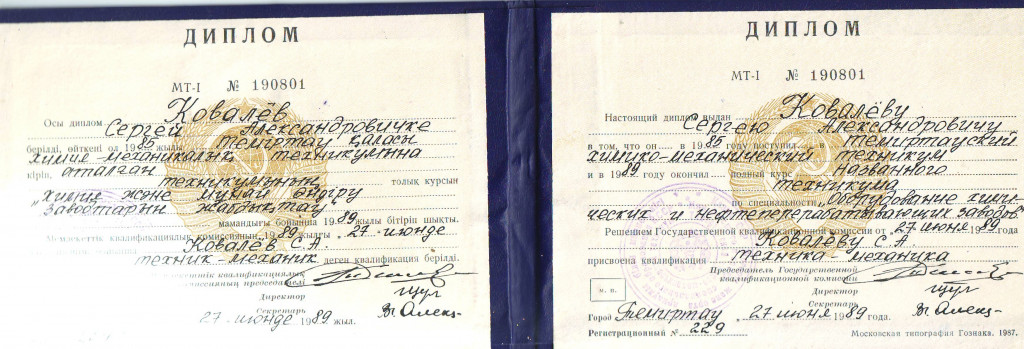 ДИПЛОМ
МТ-I № 190801
Ковалёв
Осы диплом
Сергей Александровичке
берілді, өйткені ол 1985 жылы Теміртау қаласы
химия-механикалық техникумына
кіріп, аталған
техникумының толық курсын
„химия және мұнай өңдіру
заводтарын жабдықтау
мамандығы бойынша 1989 жылы бітіріп шықты.
Мемлекеттік квалификациялық комиссияның 1989 жылғы „27" июнде
Ковалёв С.А.
техник-механик деген квалификация берілді.
Мемлекеттік квалификациялық
комиссияның председателі
Директор
Секретарь
27 июнде 1989 жыл.
ДИПЛОМ
МТ-I № 190801
Ковалёву
Настоящий диплом выдан
Сергею Александровичу
в том, что он в 1985 году поступил в Темиртауский
химико-механический техникум
и в 1989 году окончил полный курс названного
техникума
по специальности „Оборудование хими-
ческих и нефтеперерабатывающих заводов"
Решением Государственной квалификационной комиссии от „27" июня 1989 года
Ковалёву С.А.
присвоена квалификация техника-механика
Председатель Государственной
квалификационной комиссии
Директор
м. п.
Секретарь
Город Темиртау 27 июня 1989 года.
Регистрационный № 229
Московская типография Гознака. 1987.